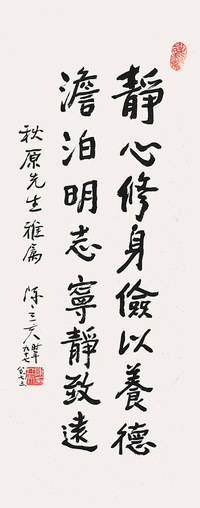 靜心修身儉以養德
澹泊明志寧靜致遠
秋原先生雅屬
陳立夫 時年九十七